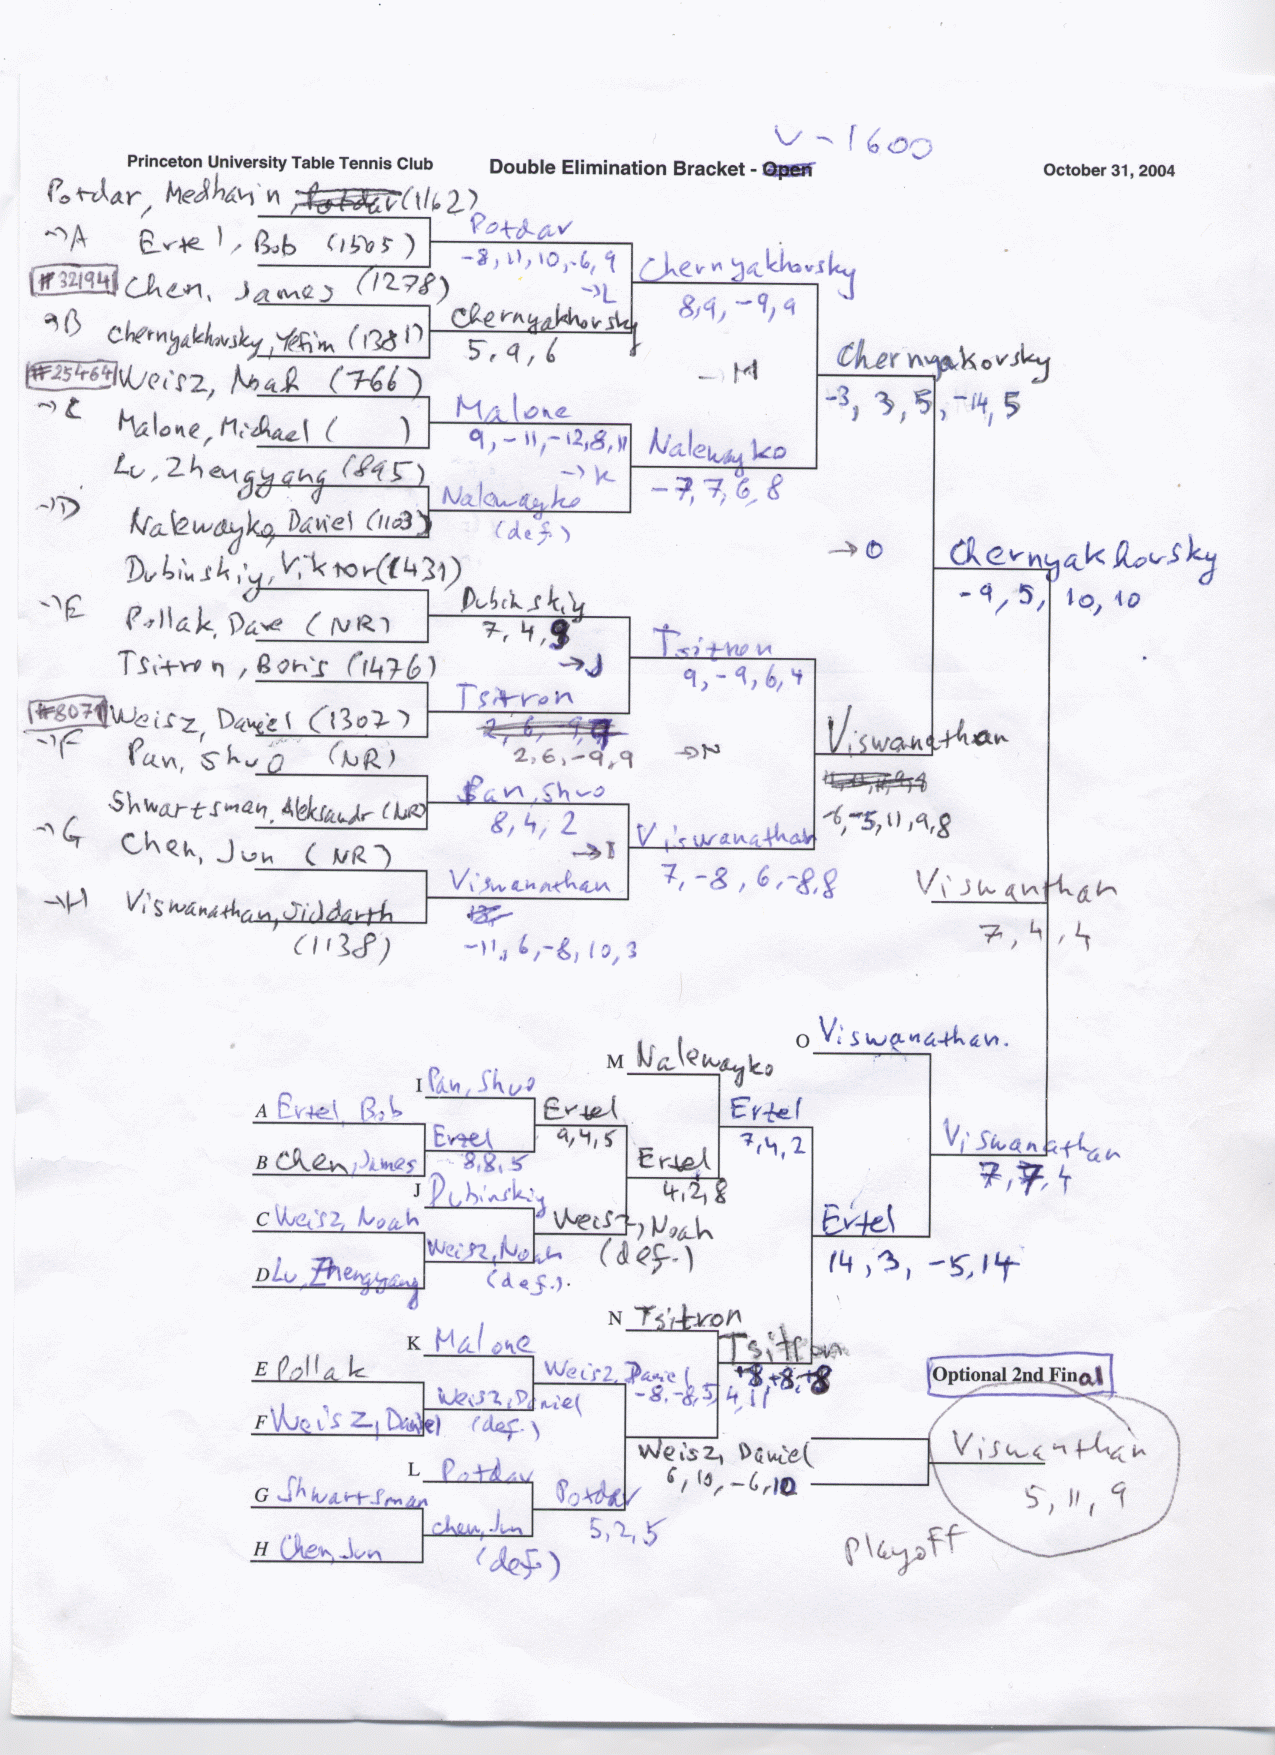 U-1600
Princeton University Table Tennis Club
Double Elimination Bracket - Open
October 31, 2004
Potdar, Medhavin, Potdar (1162)
→A Ertel, Bob (1505)
#32194 Chen, James (1278)
→B Chernyakhovsky, Yefim (1381)
#25464 Weisz, Noah (766)
→C Malone, Michael ( )
Lu, Zhengyang (895)
→D Nalewayko, Daniel (1103)
Dubinskiy, Viktor (1431)
→E Pollak, Dave (NR)
Tsitron, Boris (1476)
#8071 Weisz, Daniel (1307)
→F
Pan, Shuo (NR)
Shwartsman, Aleksandr (NR)
→G
Chen, Jun (NR)
→H Viswanathan, Siddarth
(1138)
Potdar
-8, 11, 10, -6, 9
→L
Chernyakhovsky
5, 9, 6
Malone
9, -11, -12, 8, 11
→K
Nalewayko
(def.)
Dubinskiy
7, 4, 9
→J
Tsitron
2, 6, -9, 9
2, 6, -9, 9
Pan, Shuo
8, 4, 2
→I
Viswanathan
-11, 6, -8, 10, 3
Chernyakhovsky
8, 9, -9, 9
→M
Nalewayko
-7, 7, 6, 8
Tsitron
9, -9, 6, 4
→N
Viswanathan
7, -8, 6, -8, 8
Chernyakovsky
-3, 3, 5, -14, 5
→O
Viswanathan
-6, -5, 11, 9, 8
Chernyakhovsky
-9, 5, 10, 10
Viswanthan
7, 4, 4
A Ertel, Bob
B Chen, James
C Weisz, Noah
D Lu, Zhengyang
E Pollak
F Weisz, Daniel
G Shwartsman
H Chen, Jun
I Pan, Shuo
Ertel
8, 8, 5
J Dubinskiy
Weisz, Noah
(def.).
K Malone
Weisz, Daniel
(def.)
L Potdar
Chen, Jun
(def.)
Ertel
9, 4, 5
Weisz, Noah
(def.)
Weisz, Daniel
-8, -8, 5, 4, 11
Potdar
5, 2, 5
M Nalewayko
Ertel
4, 2, 8
N Tsitron
Weisz, Daniel
6, 10, -6, 10
Ertel
7, 4, 2
Tsitron
+8, +8, +8
O Viswanathan.
Ertel
14, 3, -5, 14
Viswanathan
7, 7, 4
Optional 2nd Final
Viswanthan
5, 11, 9
Playoff